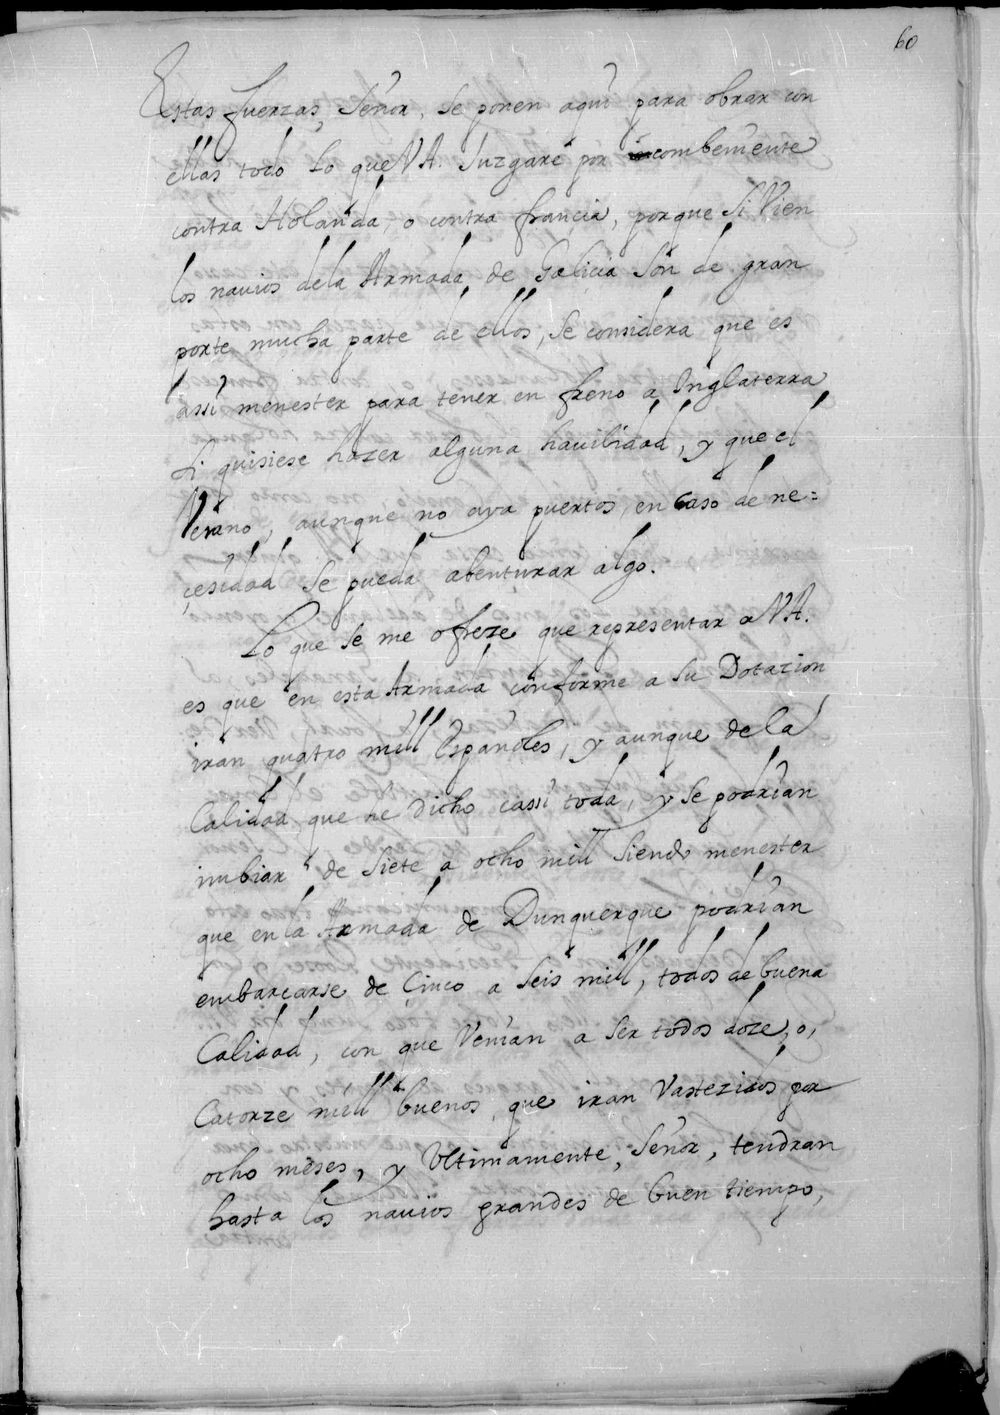 60
Estas fuerzas, Señor, se ponen aqui para obrar con
ellas todo lo que V A. Juzgare por combeniente
contra Holanda, o contra francia, porque si Vien
los navios dela Armada de Galicia Son de gran
porte mucha parte de ellos, se considera que es
assi menester para tener en freno a Inglaterra
si quisiese hazer alguna haviliдad, y que el
Verano, aunque no aya puertos, en Caso de ne=
çesidad se pueda abenturar algo.
Lo que se me ofreze que representar a V A.
es que en esta Armada conforme a su Dotazion
iran quatro mill Españoles, y aunque de la
Calidad que he Dicho cassi toda, y se podrian
imbiar de siete a ocho mill siendo menester
que en la Armada de Dunquerque podrian
embarcarse de Çinco a seis mill, todos de buena
Calidad, con que Venian a ser todos doze, o,
Catorze mill buenos, que iran Vastezidos por
ocho meses, y Ultimamente, Señor, tendran
hasta los navios grandes de buen tiempo,